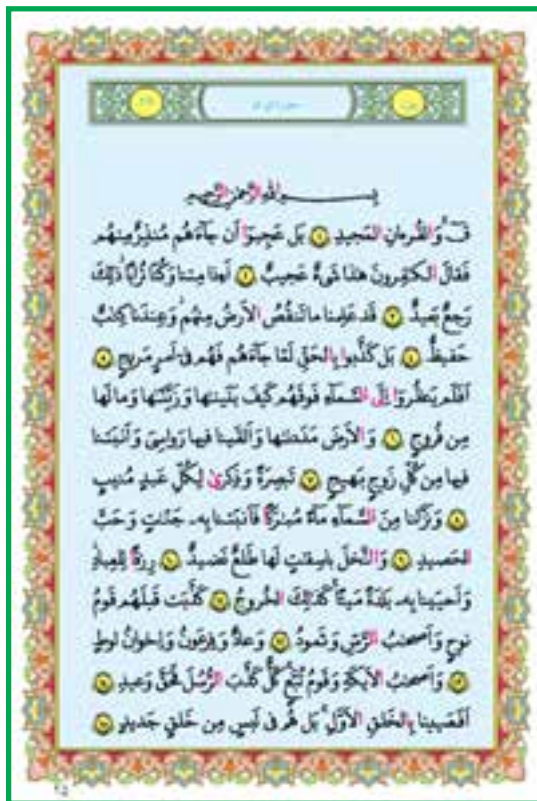 بِسْمِ اللَّهِ الرَّحْمَٰنِ الرَّحِيمِ
قٓ وَالقُرءانِ المَجيدِ ﴿١﴾ بَل عَجِبوا أَن جاءَهُم مُنذِرٌ مِنهُم
فَقالَ الكٰفِرونَ هٰذا شَىءٌ عَجيبٌ ﴿٢﴾ أَءِذا مِتنا وَكُنّا تُرابًا ذٰلِكَ
رَجعٌ بَعيدٌ ﴿٣﴾ قَد عَلِمنا ما تَنقُصُ الأَرضُ مِنهُم وَعِندَنا كِتٰبٌ
حَفيظٌ ﴿٤﴾ بَل كَذَّبوا بِالحَقِّ لَمّا جاءَهُم فَهُم فى أَمرٍ مَريجٍ ﴿٥﴾
أَفَلَم يَنظُروا إِلَى السَّماءِ فَوقَهُم كَيفَ بَنَينٰها وَزَيَّنّٰها وَما لَها
مِن فُروجٍ ﴿٦﴾ وَالأَرضَ مَدَدنٰها وَأَلقَينا فيها رَوٰسِىَ وَأَنبَتنا
فيها مِن كُلِّ زَوجٍ بَهيجٍ ﴿٧﴾ تَبصِرَةً وَذِكرىٰ لِكُلِّ عَبدٍ مُنيبٍ
﴿٨﴾ وَنَزَّلنا مِنَ السَّماءِ ماءً مُبٰرَكًا فَأَنبَتنا بِهِ جَنّٰتٍ وَحَبَّ
الحَصيدِ ﴿٩﴾ وَالنَّخلَ باسِقٰتٍ لَها طَلعٌ نَضيدٌ ﴿١٠﴾ رِزقًا لِلعِبادِ
وَأَحيَينا بِهِ بَلدَةً مَيتًا كَذٰلِكَ الخُروجُ ﴿١١﴾ كَذَّبَت قَبلَهُم قَومُ
نوحٍ وَأَصحٰبُ الرَّسِّ وَثَمودُ ﴿١٢﴾ وَعادٌ وَفِرعَونُ وَإِخوٰنُ لوطٍ
﴿١٣﴾ وَأَصحٰبُ الأَيكَةِ وَقَومُ تُبَّعٍ كُلٌّ كَذَّبَ الرُّسُلَ فَحَقَّ وَعيدِ ﴿١٤﴾
أَفَعَيينا بِالخَلقِ الأَوَّلِ بَل هُم فى لَبسٍ مِن خَلقٍ جَديدٍ ﴿١٥﴾